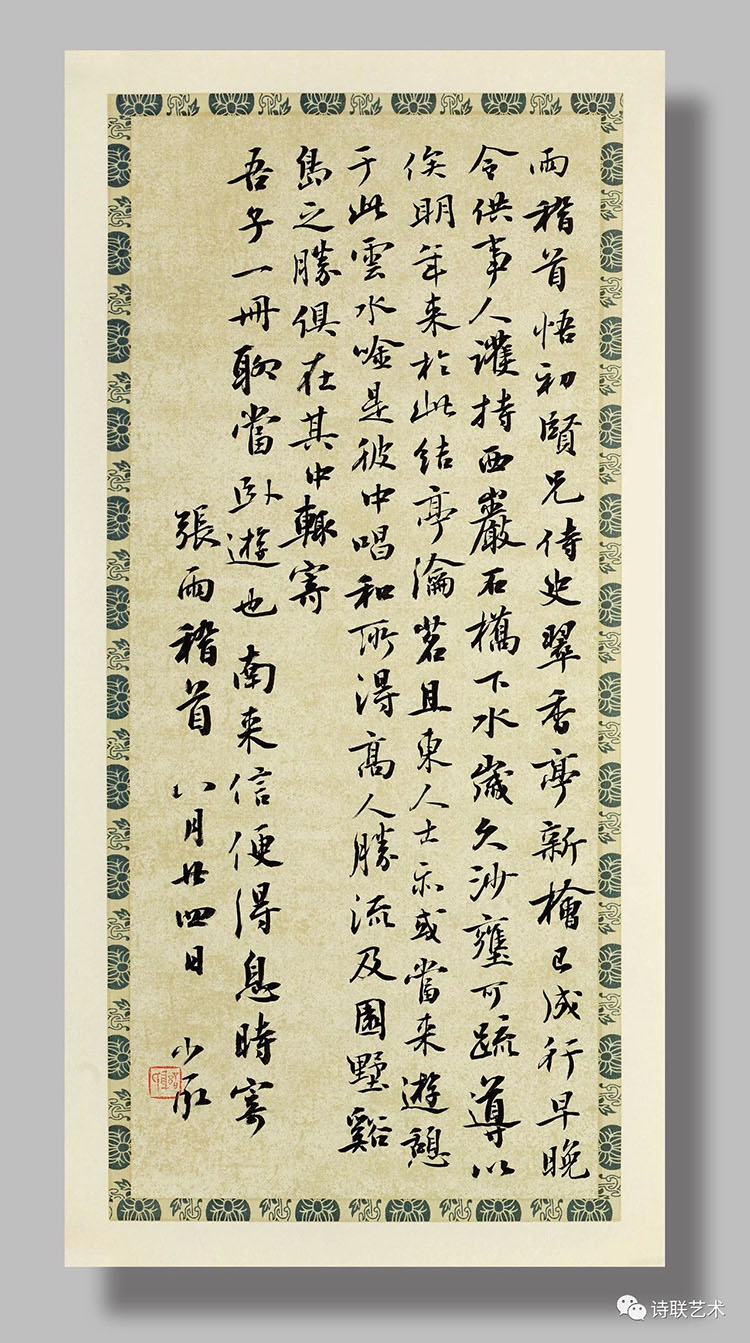 雨稽首悟初賢兄侍史翠香亭新檜已成行早晚
令供事人護持西巖石橋下水歲久沙壅可疏導以
俟明年来於此结亭瀹茗且東人士示或當来遊憩
于此雲水唫是彼中唱和所得高人勝流及園墅谿
島之勝俱在其中輒寄
吾子一冊聊當卧遊也南来信便得息時寄
張雨稽首 八月廿四日
诗联艺术